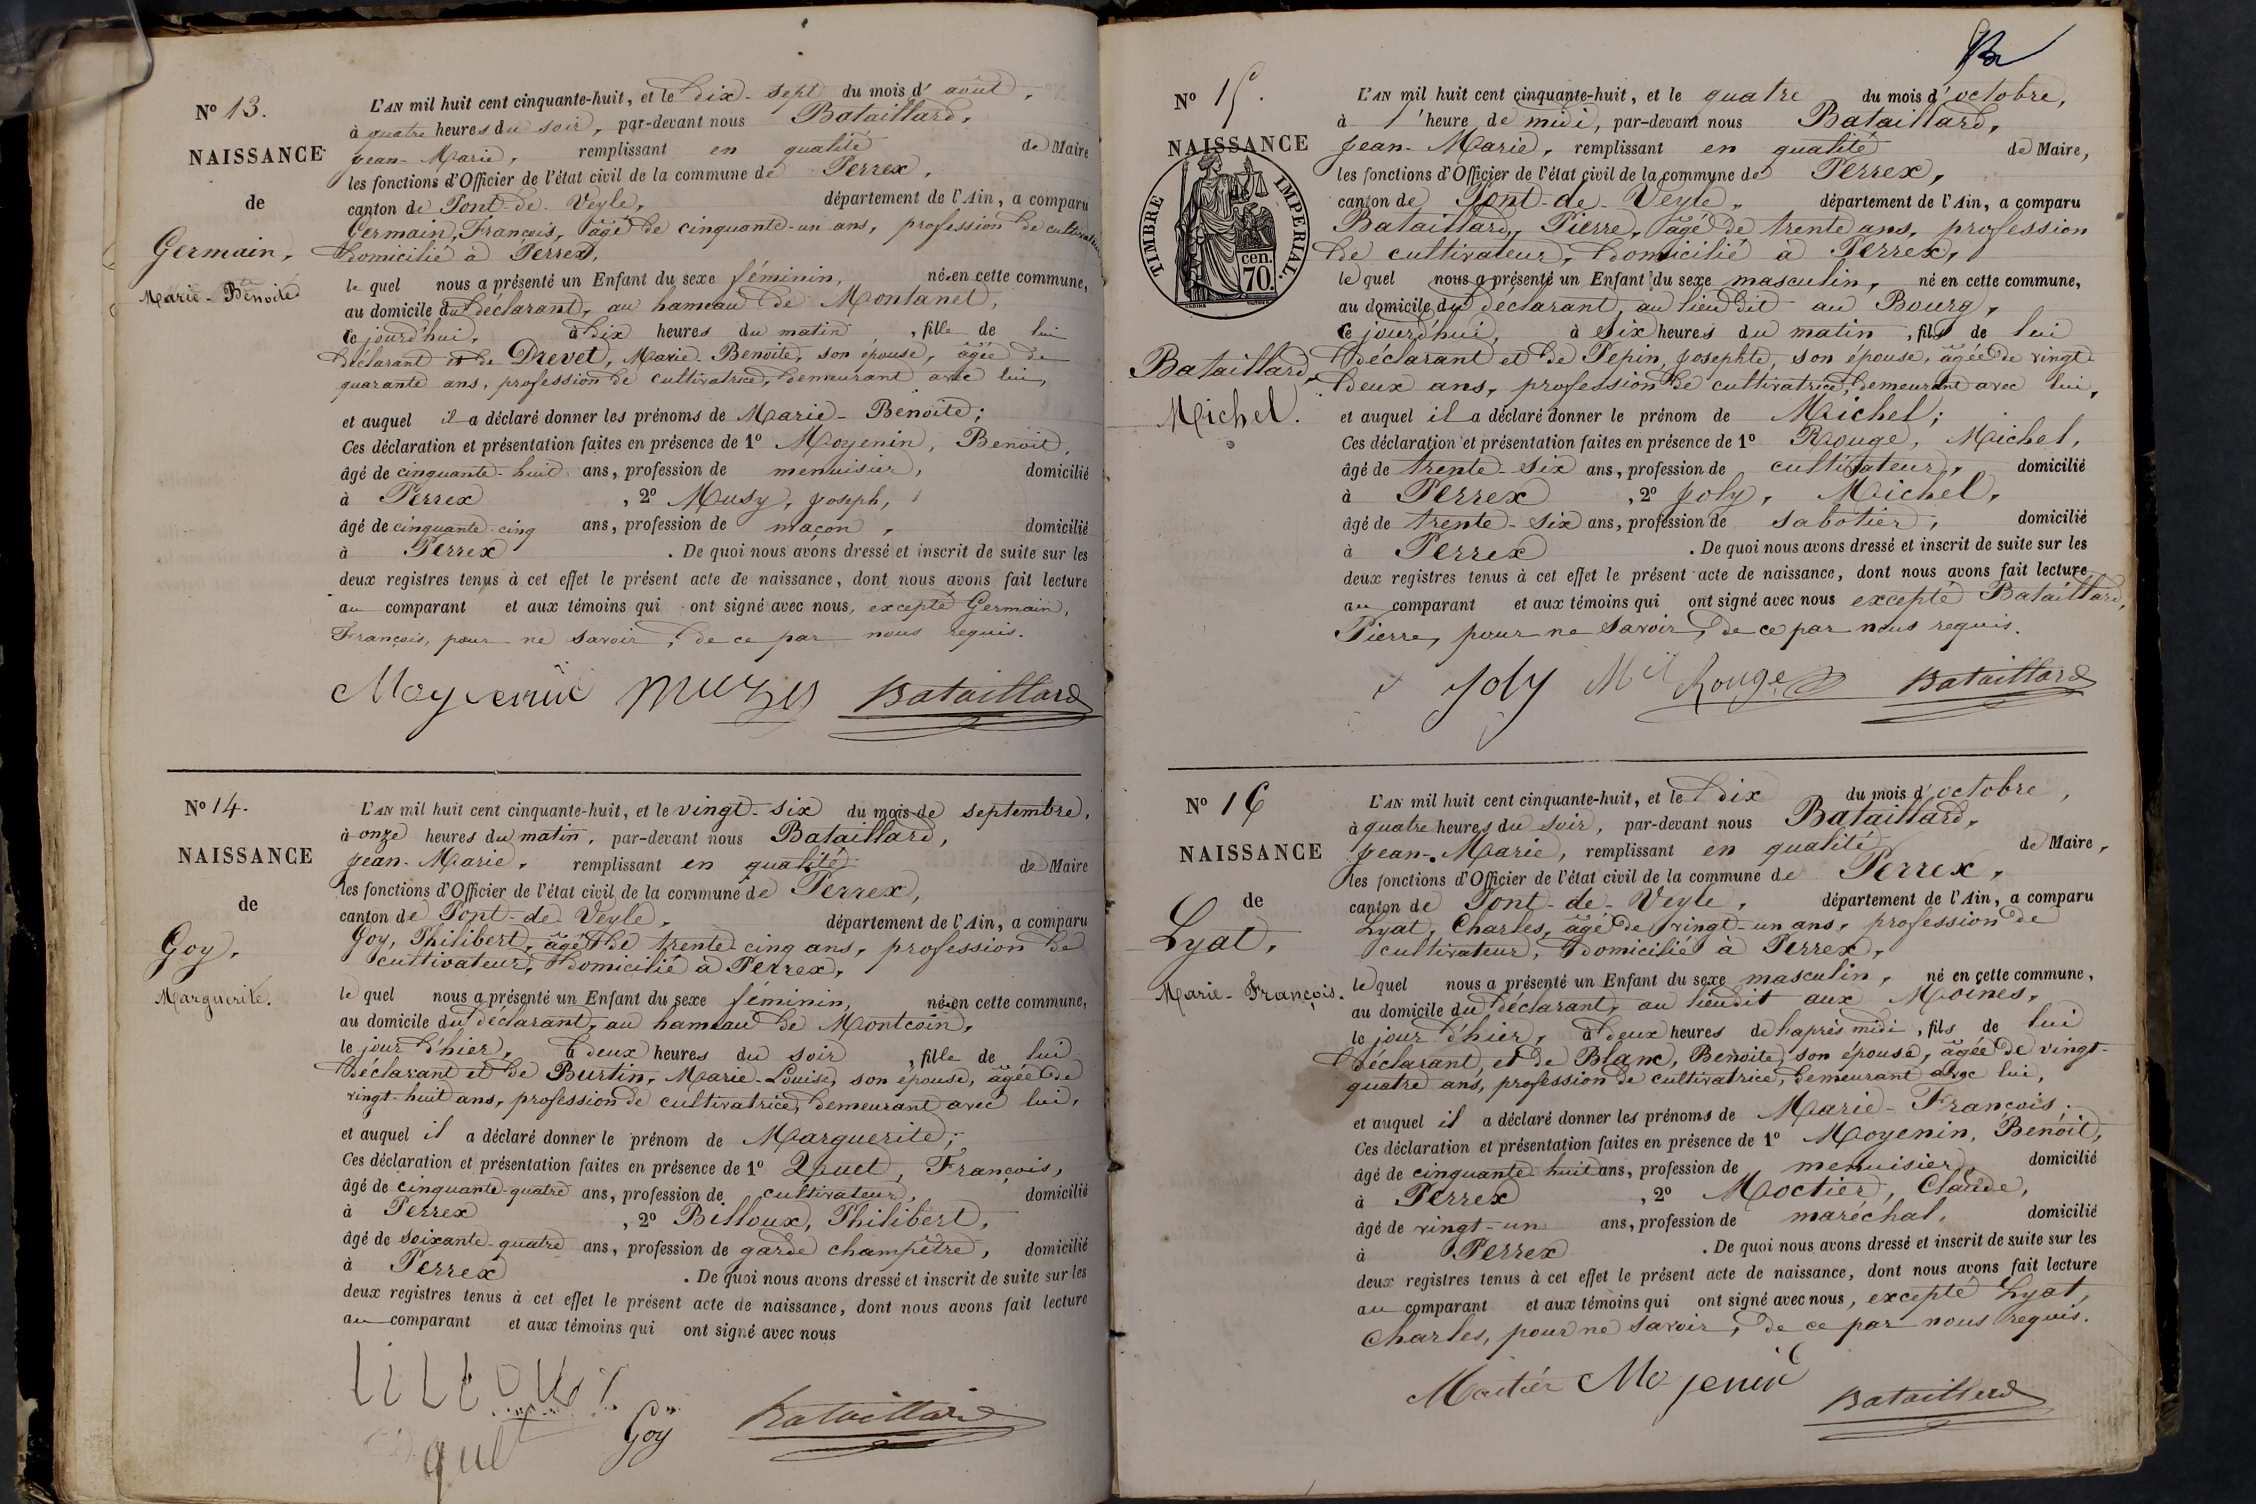 N° 13.
NAISSANCE
de
Germain,
Marie-Benoite
L'AN mil huit cent cinquante-huit, et le dix-sept du mois d'août,
à quatre heures du soir, par-devant nous Bataillard,
Jean-Marie, remplissant en qualité de Maire
les fonctions d'Officier de l'état civil de la commune de Perrex,
canton de Pont-de-Veyle, département de l'Ain, a comparu
Germain, François, âgé de cinquante-un ans, profession de cultivateur
domicilié à Perrex,
le quel nous a présenté un Enfant du sexe féminin, née en cette commune,
au domicile du déclarant, au hameau de Montanet,
ce jourd'hui, à dix heures du matin, fille de lui
déclarant et de Drevet, Marie-Benoite, son épouse, âgée de
quarante ans, profession de cultivatrice, demeurant avec lui,
et auquel il a déclaré donner les prénoms de Marie-Benoite;
Ces déclaration et présentation faites en présence de 1° Moyenin, Benoit,
âgé de cinquante-huit ans, profession de menuisier, domicilié
à Perrex, 2° Musy, Joseph,
âgé de cinquante-cinq ans, profession de maçon, domicilié
à Perrex. De quoi nous avons dressé et inscrit de suite sur les
deux registres tenus à cet effet le présent acte de naissance, dont nous avons fait lecture
au comparant et aux témoins qui ont signé avec nous, excepté Germain,
François, pour ne savoir, de ce par nous requis.
Bataillard
N° 14.
NAISSANCE
de
Goy,
Marguerite.
L'AN mil huit cent cinquante-huit, et le vingt-six du mois de septembre,
à onze heures du matin, par-devant nous Bataillard,
Jean-Marie, remplissant en qualité de Maire
les fonctions d'Officier de l'état civil de la commune de Perrex,
canton de Pont-de-Veyle, département de l'Ain, a comparu
Goy, Philibert, âgé de trente-cinq ans, profession de
cultivateur, domicilié à Perrex,
le quel nous a présenté un Enfant du sexe féminin, née en cette commune,
au domicile du déclarant, au hameau de Montcoin,
le jour d'hier, à deux heures du soir, fille de lui
déclarant et de Burtin, Marie-Louise, son épouse, âgée de
vingt-huit ans, profession de cultivatrice, demeurant avec lui,
et auquel il a déclaré donner le prénom de Marguerite;
Ces déclaration et présentation faites en présence de 1° François,
âgé de cinquante-quatre ans, profession de cultivateur, domicilié
à Perrex, 2° Billoux, Philibert,
âgé de soixante-quatre ans, profession de garde champêtre, domicilié
à Perrex. De quoi nous avons dressé et inscrit de suite sur les
deux registres tenus à cet effet le présent acte de naissance, dont nous avons fait lecture
au comparant et aux témoins qui ont signé avec nous
Goy Bataillard
N° 15.
NAISSANCE
TIMBRE IMPERIAL.
cen.
70.
Bataillard,
Michel.
L'AN mil huit cent cinquante-huit, et le quatre du mois d'octobre,
à l'heure de midi, par-devant nous Bataillard,
Jean-Marie, remplissant en qualité de Maire,
les fonctions d'Officier de l'état civil de la commune de Perrex,
canton de Pont-de-Veyle, département de l'Ain, a comparu
Bataillard, Pierre, âgé de trente ans, profession
de cultivateur, domicilié à Perrex,
le quel nous a présenté un Enfant du sexe masculin, né en cette commune,
au domicile du déclarant, au lieu dit au Bourg,
ce jourd'hui, à six heures du matin, fils de lui
déclarant et de Pepin, Josephte, son épouse, âgée de vingt-
deux ans, profession de cultivatrice, demeurant avec lui,
et auquel il a déclaré donner le prénom de Michel;
Ces déclaration et présentation faites en présence de 1° Rouge, Michel,
âgé de trente-six ans, profession de cultivateur, domicilié
à Perrex, 2° Joly, Michel,
âgé de trente-six ans, profession de sabotier, domicilié
à Perrex. De quoi nous avons dressé et inscrit de suite sur les
deux registres tenus à cet effet le présent acte de naissance, dont nous avons fait lecture
au comparant et aux témoins qui ont signé avec nous excepté Bataillard,
Pierre, pour ne savoir, de ce par nous requis.
Joly Mil Rouge Bataillard
N° 16
NAISSANCE
de
Lyat,
Marie-François.
L'AN mil huit cent cinquante-huit, et le dix du mois d'octobre,
à quatre heures du soir, par-devant nous Bataillard,
Jean-Marie, remplissant en qualité de Maire,
les fonctions d'Officier de l'état civil de la commune de Perrex,
canton de Pont-de-Veyle, département de l'Ain, a comparu
Lyat, Charles, âgé de vingt-un ans, profession de
cultivateur, domicilié à Perrex,
le quel nous a présenté un Enfant du sexe masculin, né en cette commune,
au domicile du déclarant, au lieu dit aux Moines,
le jour d'hier, à deux heures de l'après midi, fils de lui
déclarant, et de Blanc, Benoite, son épouse, âgée de vingt-
quatre ans, profession de cultivatrice, demeurant avec lui,
et auquel il a déclaré donner les prénoms de Marie-François;
Ces déclaration et présentation faites en présence de 1° Moyenin, Benoit,
âgé de cinquante-huit ans, profession de menuisier, domicilié
à Perrex, 2° Moctier, Claude,
âgé de vingt-un ans, profession de maréchal, domicilié
à Perrex. De quoi nous avons dressé et inscrit de suite sur les
deux registres tenus à cet effet le présent acte de naissance, dont nous avons fait lecture
au comparant et aux témoins qui ont signé avec nous, excepté Lyat,
Charles, pour ne savoir, de ce par nous requis.
Bataillard